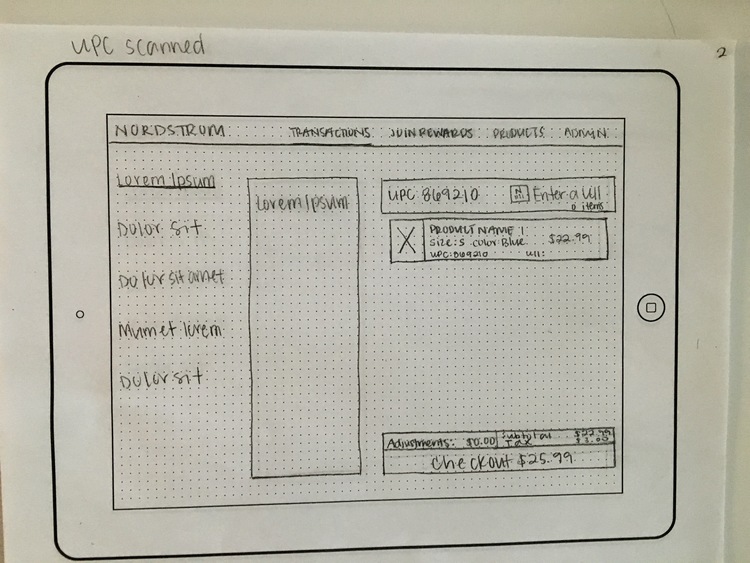 UPC scanned
2
NORDSTROM TRANSACTIONS JOIN REWARDS PRODUCTS ADMIN
Lorem Ipsum
Dolor sit
Dolor sit amet
Mum et lorem
Dolor sit
Lorem Ipsum
UPC 869210
Enter a UII
0 items
PRODUCT NAME 1
Size: S color: Blue
UPC: 869210 UII:
$22.99
Adjustments: $0.00
Subtotal $22.99
Tax $3.00
Checkout $25.99